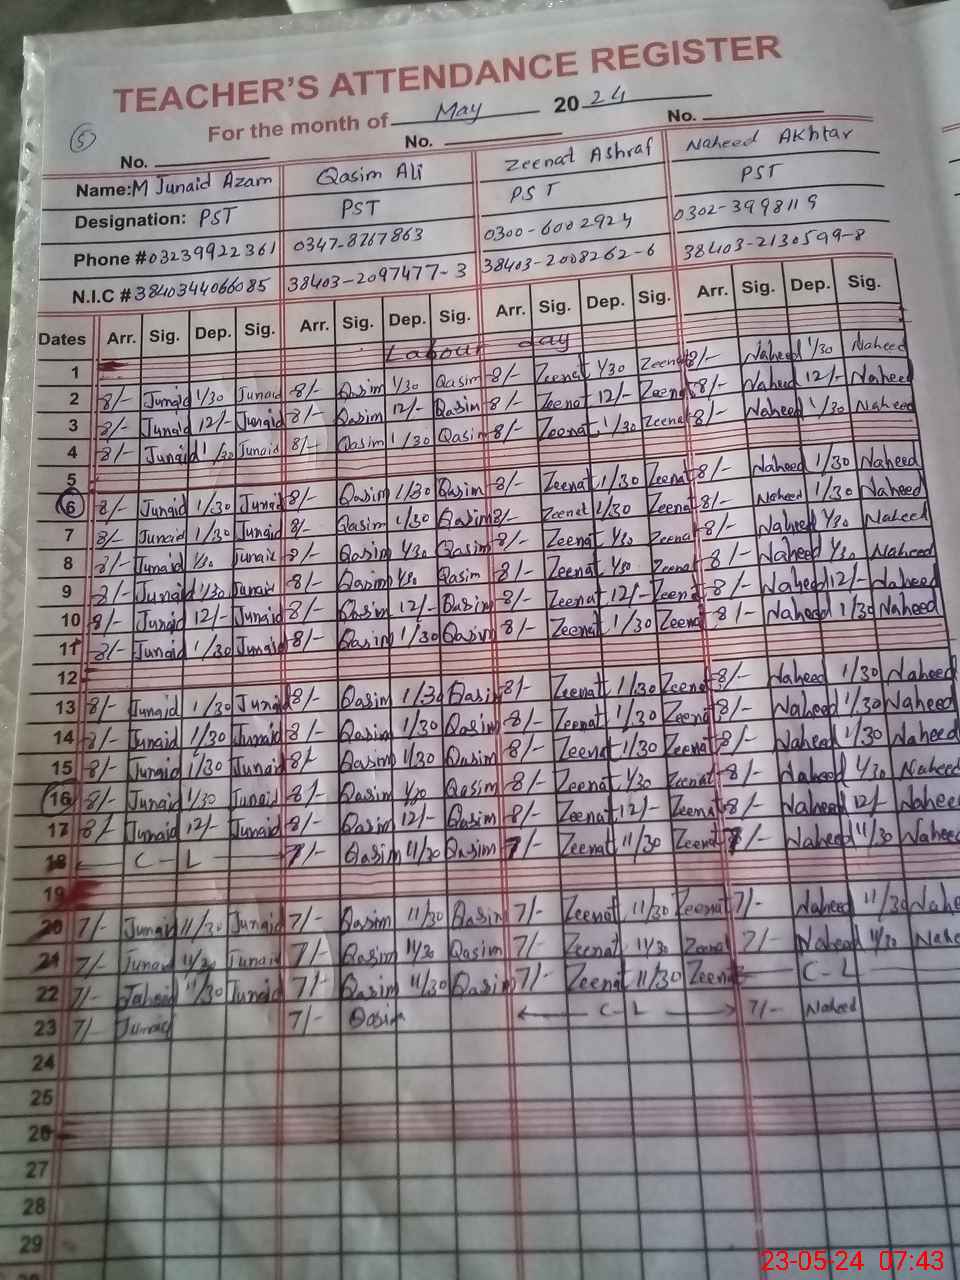 TEACHER'S ATTENDANCE REGISTER
For the month of May 2024
5
No. No. No.
Name: M Junaid Azam Qasim Ali Zeenat Ashraf Naheed Akhtar
Designation: PST PST PST PST
Phone # 03239922361 0347-8767863 0300-6002924 0302-3998119
N.I.C # 3840344066085 38403-2097477-3 38403-2008262-6 38403-2130599-8
Dates Arr. Sig. Dep. Sig. Arr. Sig. Dep. Sig. Arr. Sig. Dep. Sig. Arr. Sig. Dep. Sig.
1 Labour day
2 8/- Junaid 1/30 Junaid 8/- Qasim 1/30 Qasim 8/- Zeenat 1/30 Zeenat 8/- Naheed 1/30 Naheed
3 8/- Junaid 12/- Junaid 8/- Qasim 12/- Qasim 8/- Zeenat 12/- Zeenat 8/- Naheed 12/- Naheed
4 8/- Junaid 1/30 Junaid 8/- Qasim 1/30 Qasim 8/- Zeenat 1/30 Zeenat 8/- Naheed 1/30 Naheed
5
6 8/- Junaid 1/30 Junaid 8/- Qasim 1/30 Qasim 8/- Zeenat 1/30 Zeenat 8/- Naheed 1/30 Naheed
7 8/- Junaid 1/30 Junaid 8/- Qasim 1/30 Qasim 8/- Zeenat 1/30 Zeenat 8/- Naheed 1/30 Naheed
8 8/- Junaid 1/30 Junaid 8/- Qasim 1/30 Qasim 8/- Zeenat 1/30 Zeenat 8/- Naheed 1/30 Naheed
9 8/- Junaid 1/30 Junaid 8/- Qasim 1/30 Qasim 8/- Zeenat 1/30 Zeenat 8/- Naheed 1/30 Naheed
10 8/- Junaid 12/- Junaid 8/- Qasim 12/- Qasim 8/- Zeenat 12/- Zeenat 8/- Naheed 12/- Naheed
11 8/- Junaid 1/30 Junaid 8/- Qasim 1/30 Qasim 8/- Zeenat 1/30 Zeenat 8/- Naheed 1/30 Naheed
12
13 8/- Junaid 1/30 Junaid 8/- Qasim 1/30 Qasim 8/- Zeenat 1/30 Zeenat 8/- Naheed 1/30 Naheed
14 8/- Junaid 1/30 Junaid 8/- Qasim 1/30 Qasim 8/- Zeenat 1/30 Zeenat 8/- Naheed 1/30 Naheed
15 8/- Junaid 1/30 Junaid 8/- Qasim 1/30 Qasim 8/- Zeenat 1/30 Zeenat 8/- Naheed 1/30 Naheed
16 8/- Junaid 1/30 Junaid 8/- Qasim 1/30 Qasim 8/- Zeenat 1/30 Zeenat 8/- Naheed 1/30 Naheed
17 8/- Junaid 12/- Junaid 8/- Qasim 12/- Qasim 8/- Zeenat 12/- Zeenat 8/- Naheed 12/- Naheed
18 C-L 7/- Qasim 11/30 Qasim 7/- Zeenat 11/30 Zeenat 7/- Naheed 11/30 Naheed
19
20 7/- Junaid 11/30 Junaid 7/- Qasim 11/30 Qasim 7/- Zeenat 11/30 Zeenat 7/- Naheed 11/30 Nahe
21 7/- Junaid 11/30 Junaid 7/- Qasim 11/30 Qasim 7/- Zeenat 11/30 Zeenat 7/- Naheed 11/30 Nahe
22 7/- 11/30 Junaid 7/- Qasim 11/30 Qasim 7/- Zeenat 11/30 Zeenat C-L
23 7/- Junaid 7/- Qasim C-L 7/- Naheed
24
25
26
27
28
29
23-05-24 07:43